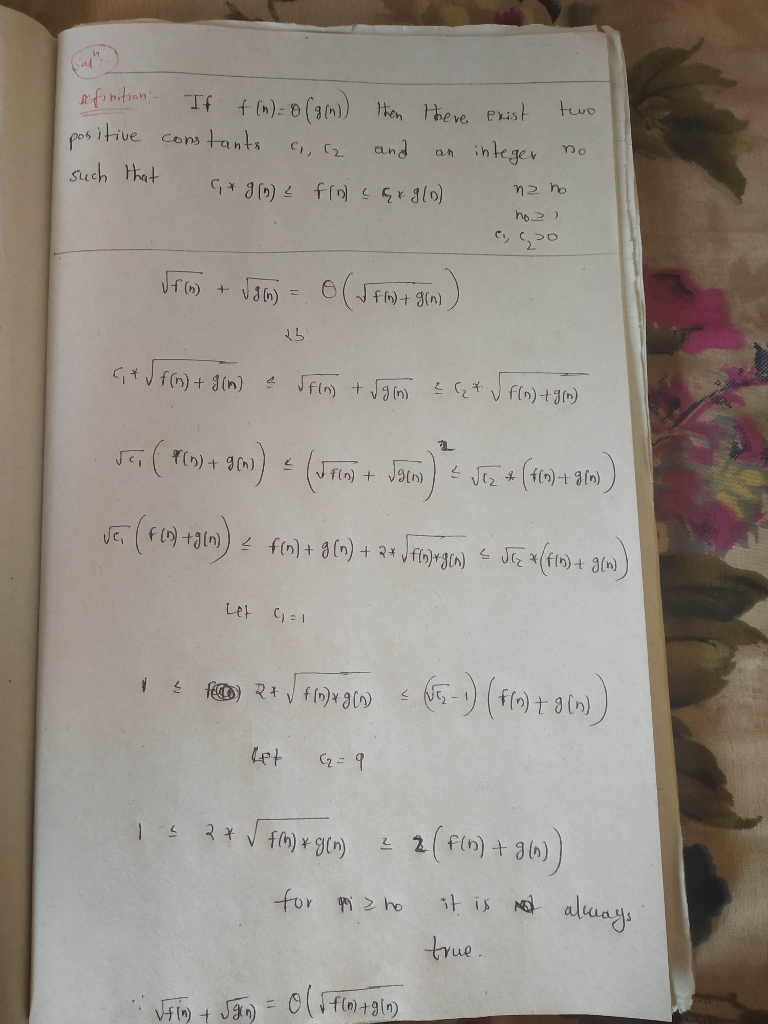 Definition:- If f(n)=θ(g(n)) then there exist two
positive constants c₁, c₂ and an integer no
such that c₁* g(n) ≤ f(n) ≤ c₂* g(n) n≥ no
no≥1
c₁, c₂>0
√f(n) + √g(n) = θ(√f(n)+g(n))
c₁* √f(n)+g(n) ≤ √f(n) + √g(n) ≤ c₂* √f(n)+g(n)
√c₁ (f(n)+g(n)) ≤ (√f(n) + √g(n))² ≤ √c₂ * (f(n)+g(n))
√c₁ (f(n)+g(n)) ≤ f(n)+g(n)+2*√f(n)*g(n) ≤ √c₂ *(f(n)+g(n))
Let c₁=1
1 ≤ 2* √f(n)*g(n) ≤ (√c₂-1) (f(n)+g(n))
Let c₂=9
1 ≤ 2* √f(n)*g(n) ≤ 2(f(n)+g(n))
for n≥no it is always
true.
∵ √f(n) + √g(n) = θ(√f(n)+g(n)